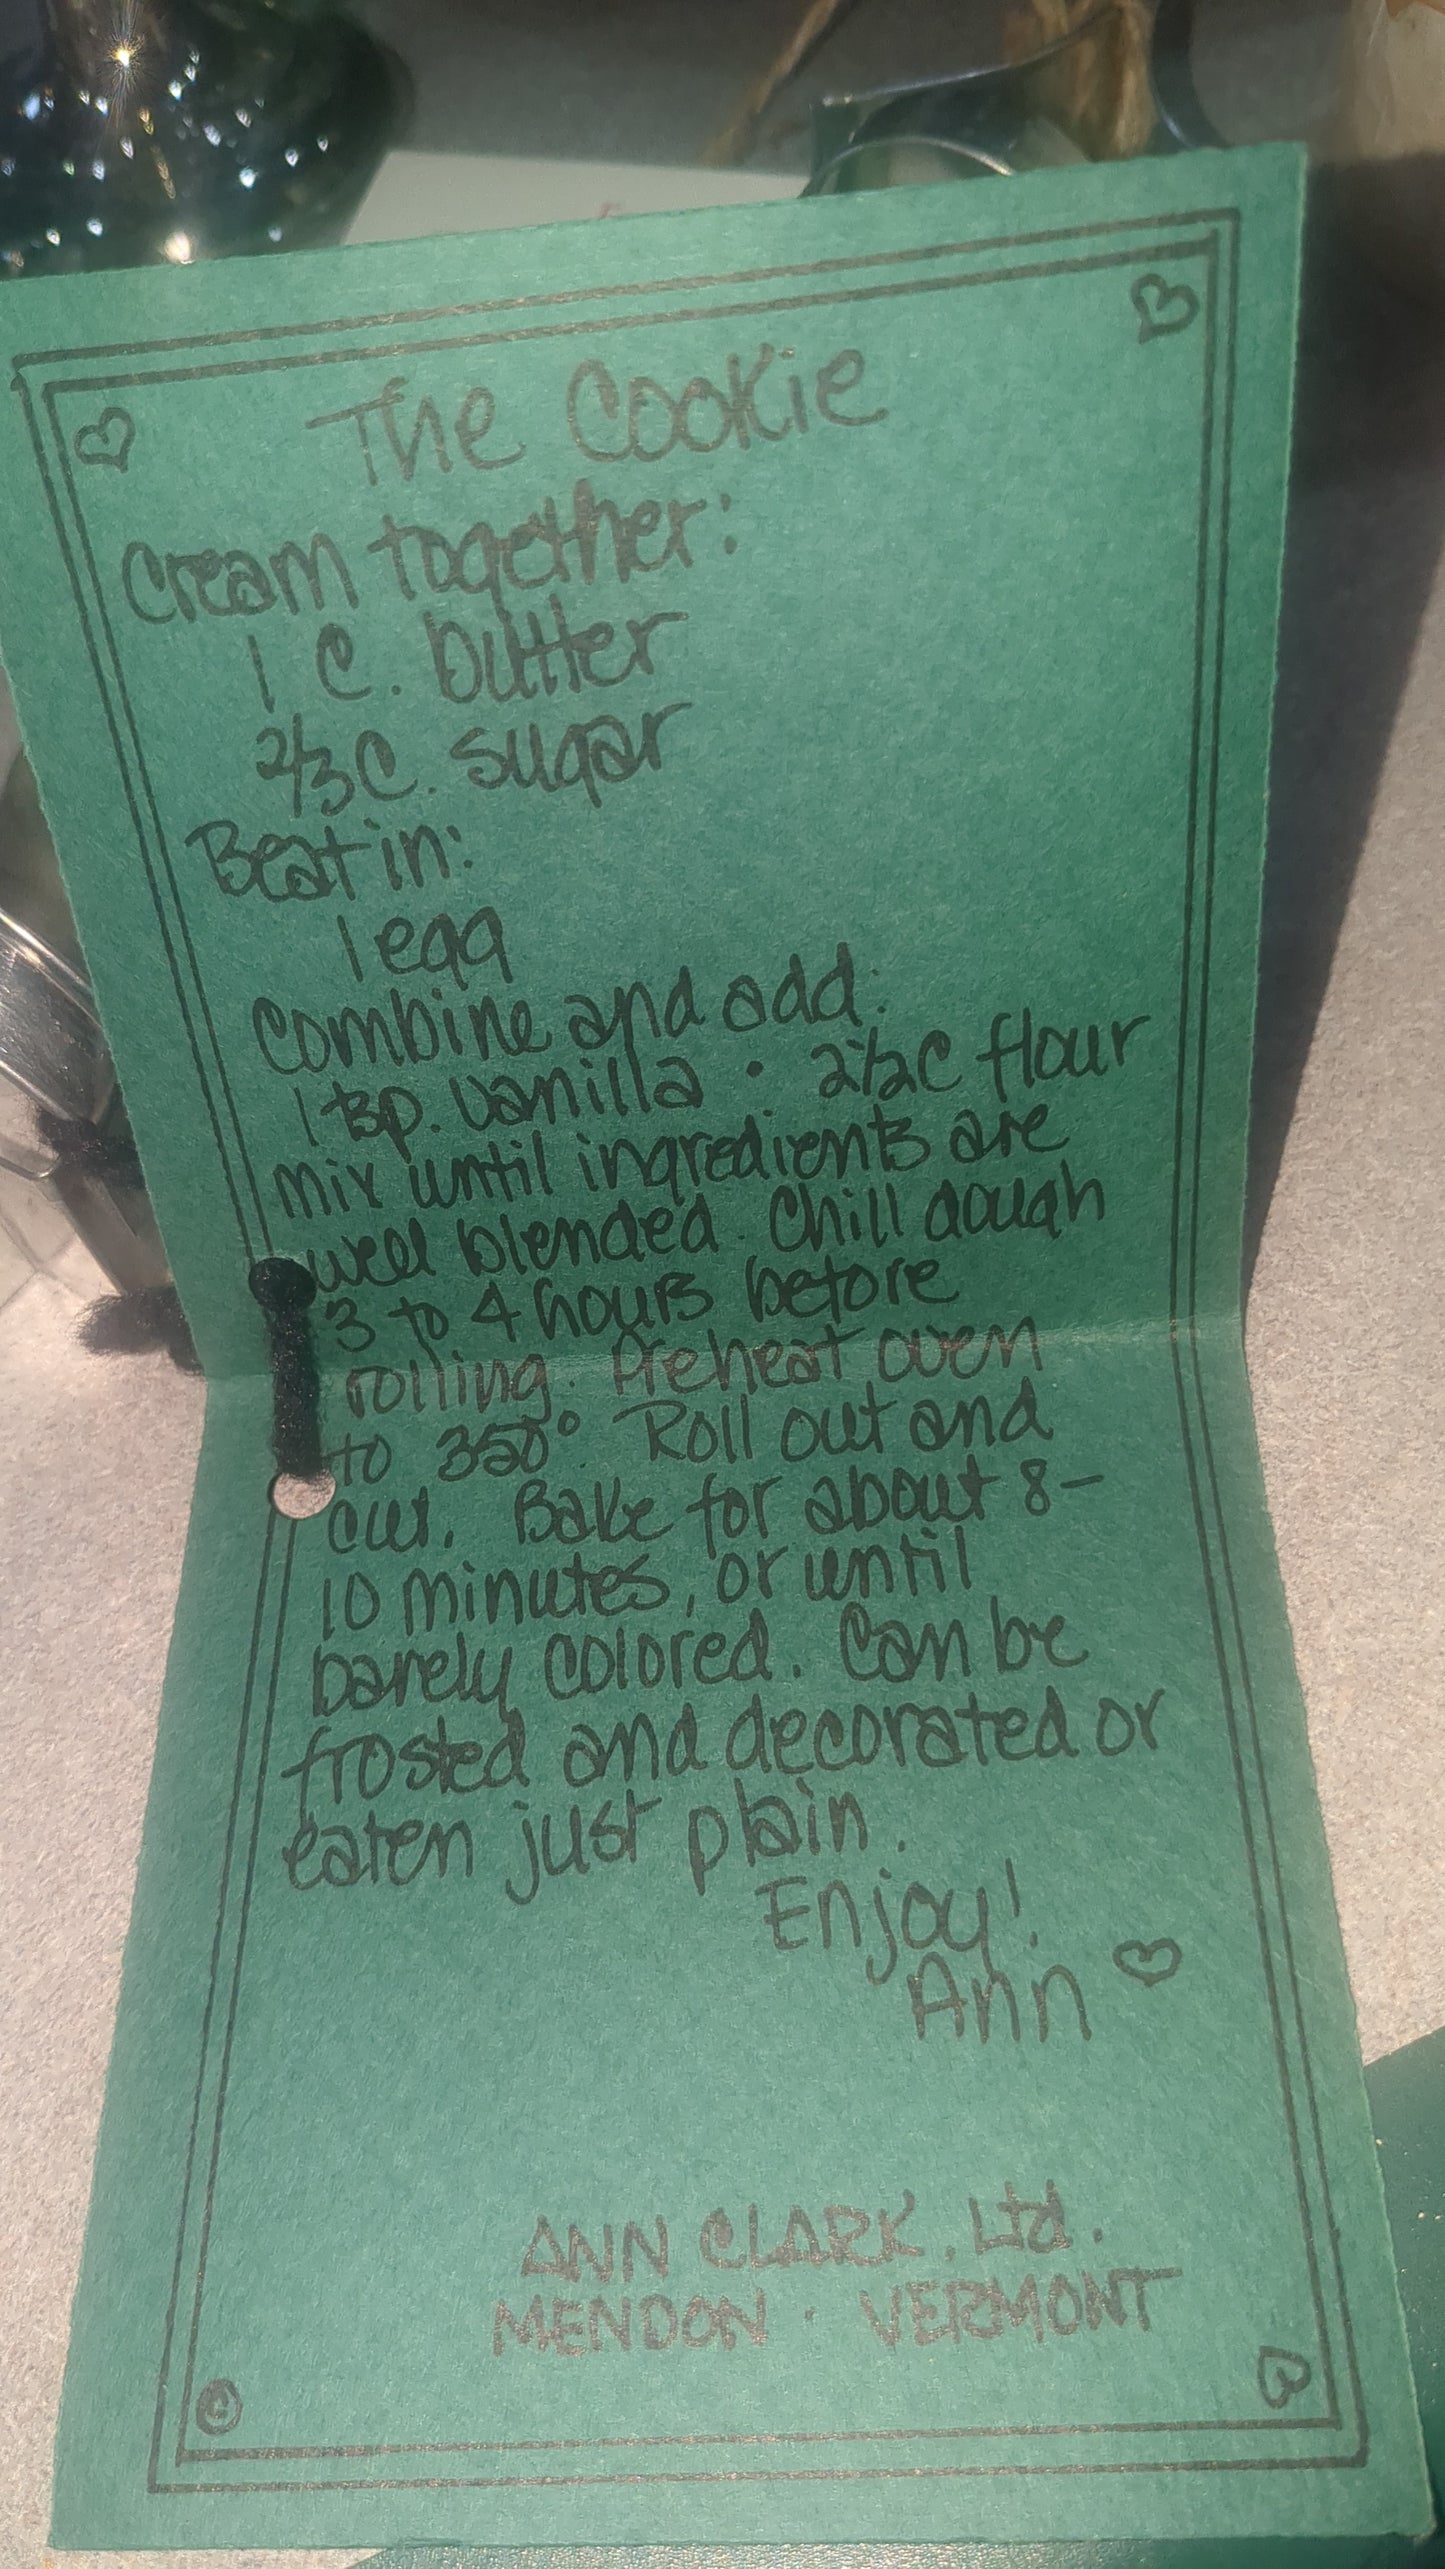 The Cookie
Cream together:
1 C. butter
2/3 C. sugar
Beat in:
1 egg
Combine and add:
1 tsp. vanilla • 2 1/2 C flour
mix until ingredients are
well blended. Chill dough
3 to 4 hours before
rolling. Preheat oven
to 350°. Roll out and
cut. Bake for about 8-
10 minutes, or until
barely colored. Can be
frosted and decorated or
eaten just plain.
Enjoy!
Ann ♡
ANN CLARK, Ltd.
MENDON • VERMONT